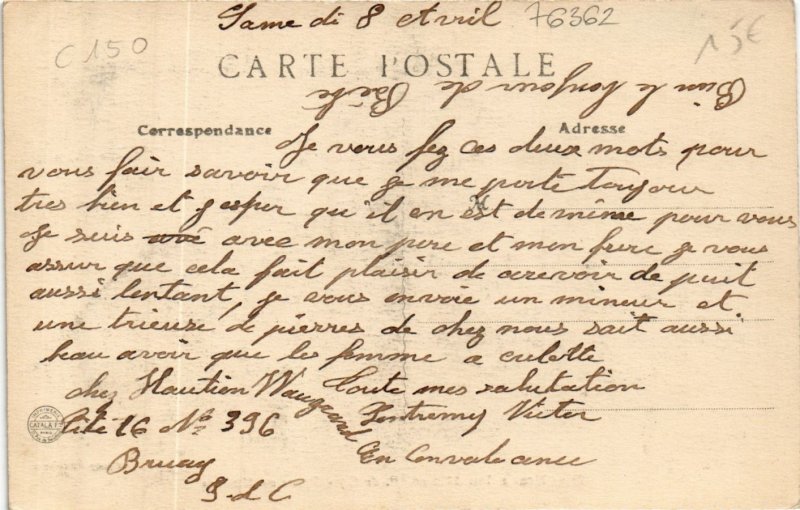 Same di 8 Avril 76362
C 150
15€
CARTE POSTALE
Bien le bonjour de
Correspondance
Adresse
Je vous fez ces deux mots pour
vous fair savoir que je me porte toujour
tres bien et j esper qu'il en est de même pour vous
Je suis avé avec mon pere et mon frere je vous
assur que cela fait plaisir de ce revoir de puit
aussi lontant, je vous envoie un mineur et
une trieuse de pierres de chez nous sait aussi
beau avoir que les femme a culotte
chez Haution Toute mes salutation
Cité 16 Nº 396 Victor
Bruay En Convalecance
P. d C
IMPRIMERIE CATALA Fres PARIS